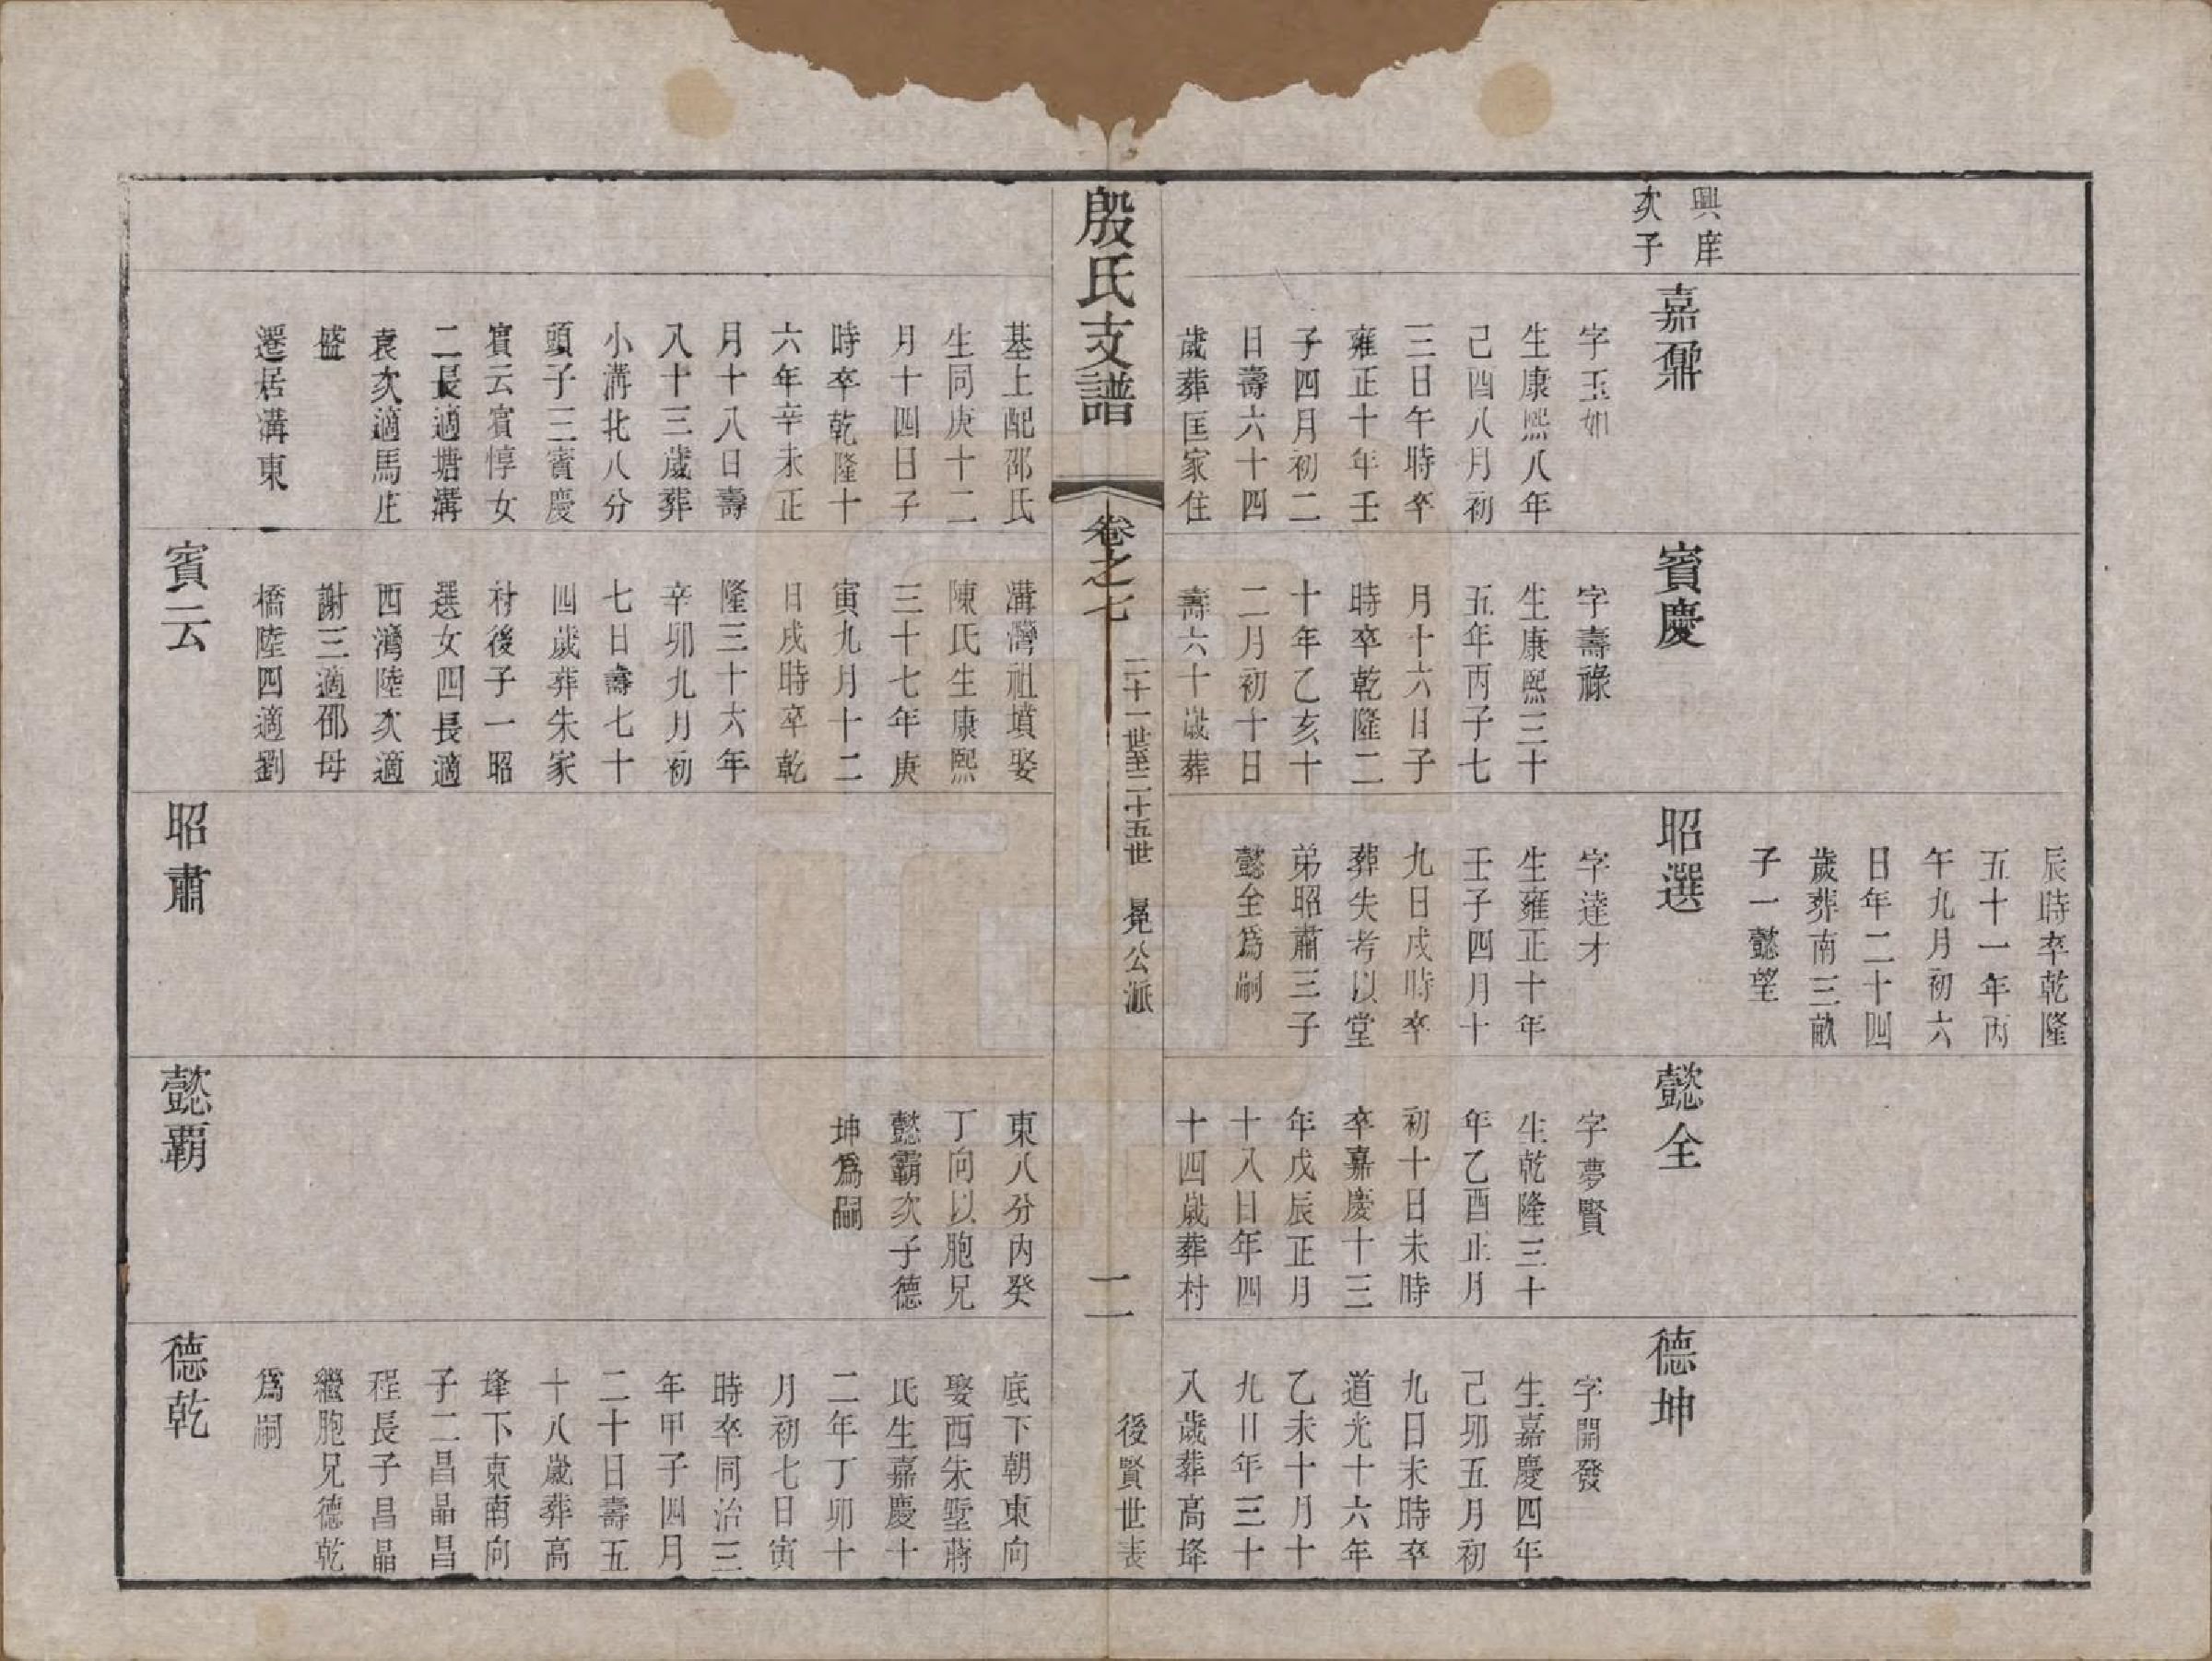 興庠
次子
嘉鼐
字玉如
生康熙八年
己酉八月初
三日午時卒
雍正十年壬
子四月初二
日壽六十四
歲葬匡家住
基上配邵氏
生同庚十二
月十四日子
時卒乾隆十
六年辛未正
月十八日壽
八十三歲葬
小溝北八分
頭子三賓慶
賓云賓惇女
二長適塘溝
袁次適馬庄
盛
遷居溝東
賓慶
字壽祿
生康熙三十
五年丙子七
月十六日子
時卒乾隆二
十年乙亥十
二月初十日
壽六十歲葬
溝灣祖墳娶
陳氏生康熙
三十七年庚
寅九月十二
日戌時卒乾
隆三十六年
辛卯九月初
七日壽七十
四歲葬朱家
村後子一昭
選女四長適
西灣陸次適
謝三適邵母
橋陸四適劉
賓云
辰時卒乾隆
五十一年丙
午九月初六
日年二十四
歲葬南三畝
子一懿望
昭選
字達才
生雍正十年
壬子四月十
九日戌時卒
葬失考以堂
弟昭肅三子
懿全爲嗣
昭肅
懿全
字夢賢
生乾隆三十
年乙酉正月
初十日未時
卒嘉慶十三
年戊辰正月
十八日年四
十四歲葬村
東八分內癸
丁向以胞兄
懿霸次子德
坤爲嗣
懿覇
德坤
字開發
生嘉慶四年
己卯五月初
九日未時卒
道光十六年
乙未十月十
九日年三十
八歲葬高垾
底下朝東向
娶西朱墅蔣
氏生嘉慶十
二年丁卯十
月初七日寅
時卒同治三
年甲子四月
二十日壽五
十八歲葬高
垾下東南向
子二昌晶昌
程長子昌晶
繼胞兄德乾
爲嗣
德乾
殷氏支譜
卷之七
二十一世至二十五世 晃公派
二
後賢世表